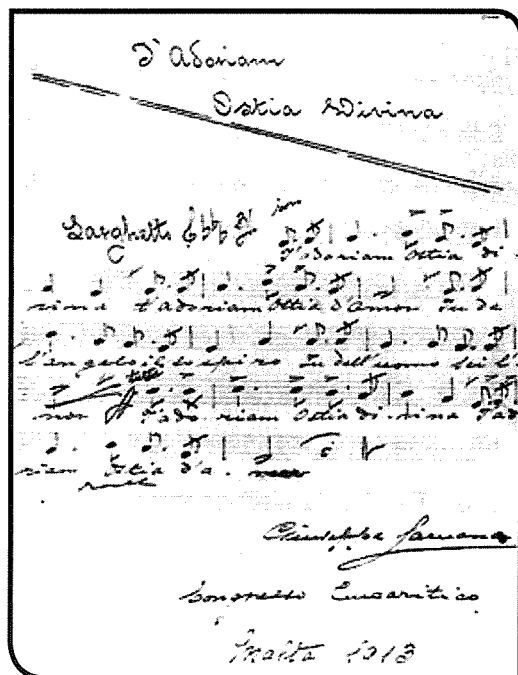 T'adoriam
Ostia Divina
Larghetto
T'adoriam Ostia di
vina t'adoriam Ostia d'amor tu de
l'angelo il sospiro tu dell'uomo sei l'o
nor tutti T'adoriam Ostia divina T'ado
riam Ostia d'a. mor
rall
Giuseppe Caruana
Congresso Eucaristico
Malta 1913